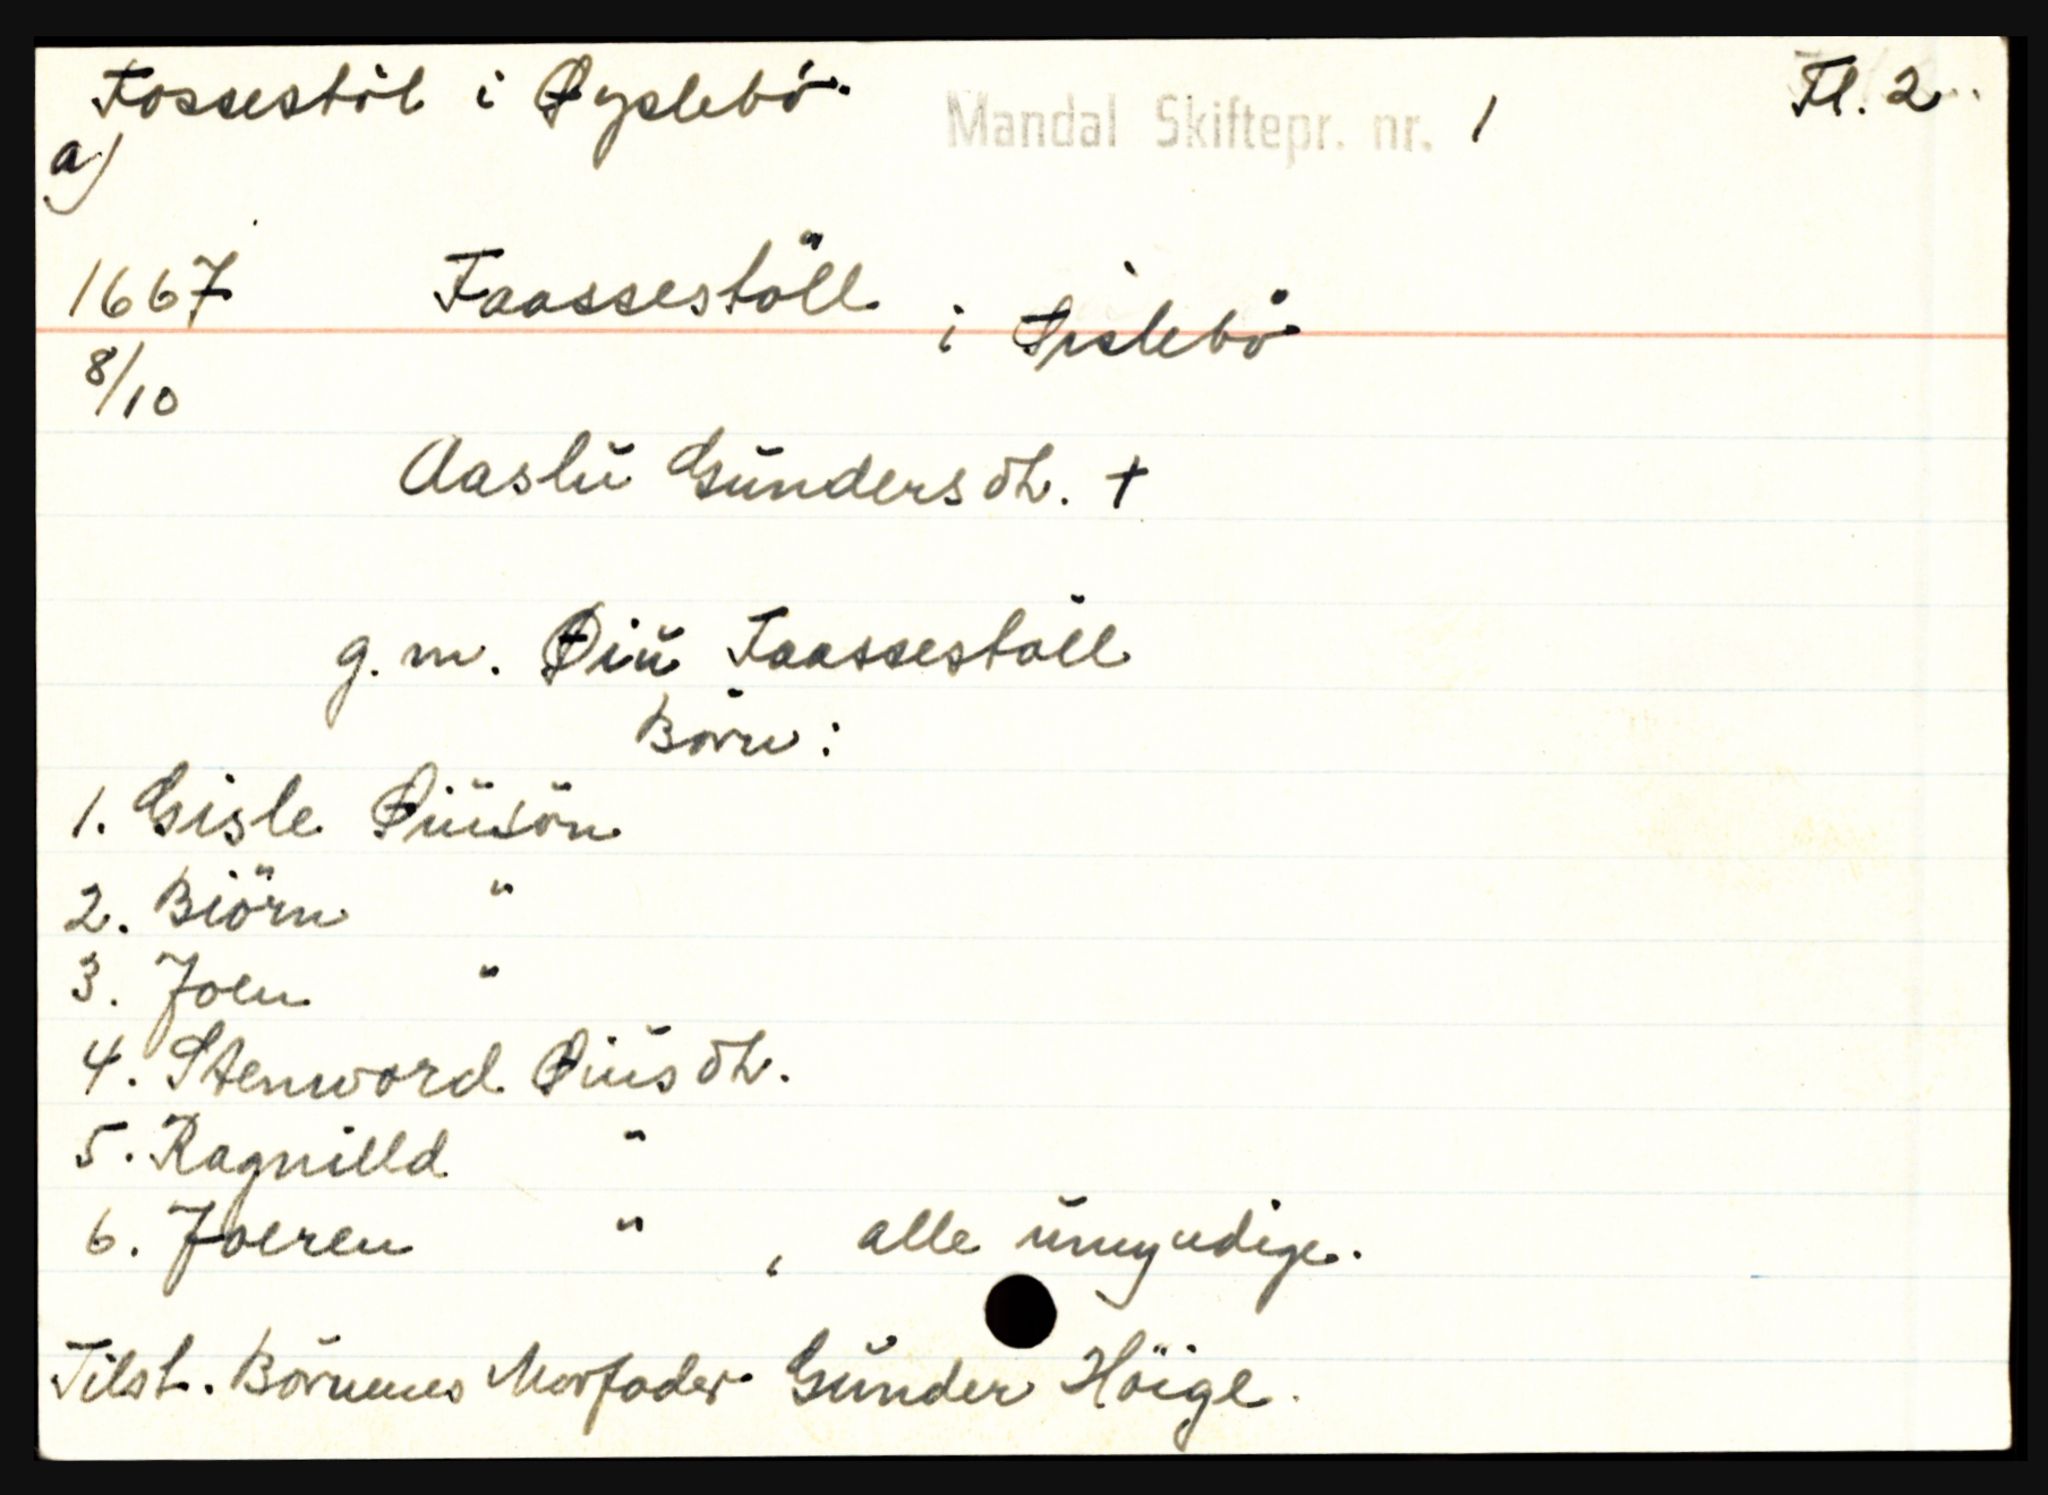 Fossestöl i Øyslebö. Mandal Skiftepr. nr. 1 Fl. 2
a)
1667 Faassestöll i Øislebö
8/10
Aaslu Gundersdt. †
g.m. Øiu Faassestöll
Börn:
1. Gisle Øiusön
2. Biörn "
3. Joen "
4. Stenword Øiusdt.
5. Ragnilld "
6. Joeren " , alle umyndige.
Tilst. Börnenes Morfader Gunder Höige.